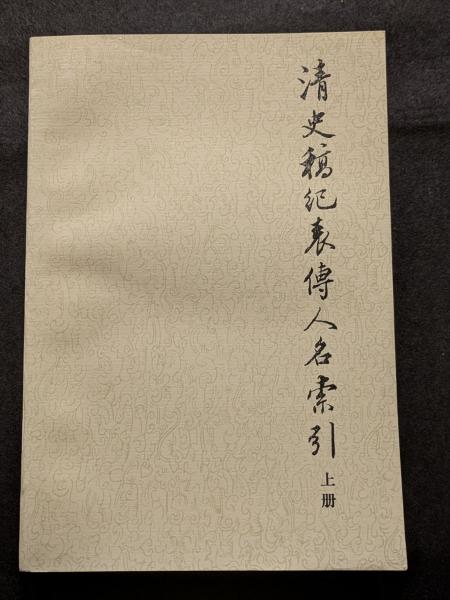 清史稿纪表傳人名索引
上册